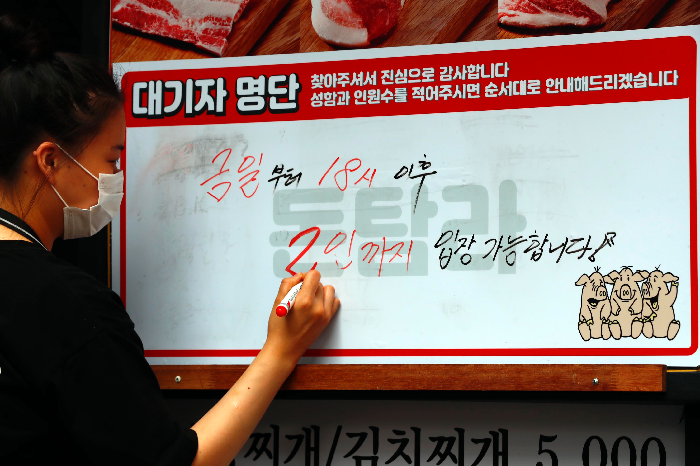 대기자 명단
찾아주셔서 진심으로 감사합니다
성함과 인원수를 적어주시면 순서대로 안내해드리겠습니다
금일부터 18시 이후
돈탐라
2인까지 입장 가능합니다!
찌개/김치찌개 5,000